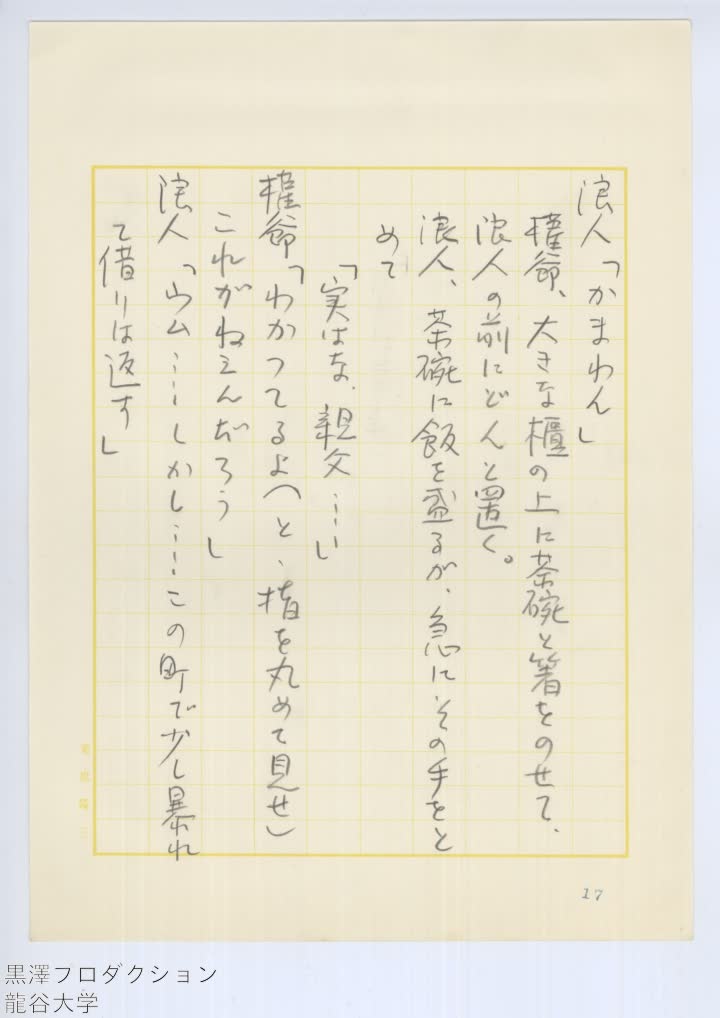 浪人「かまわん」
権爺、大きな櫃の上に茶碗と箸をのせて、
浪人の前にどんと置く。
浪人、茶碗に飯を盛るが、急にその手をと
めて
「実はな、親父……」
権爺「わかつてるよ(と、指を丸めて見せ)
これがねえんだろう」
浪人「ウム……しかし……この町で少し暴れ
て借りは返す」
17
黒澤フロダクション
龍谷大学